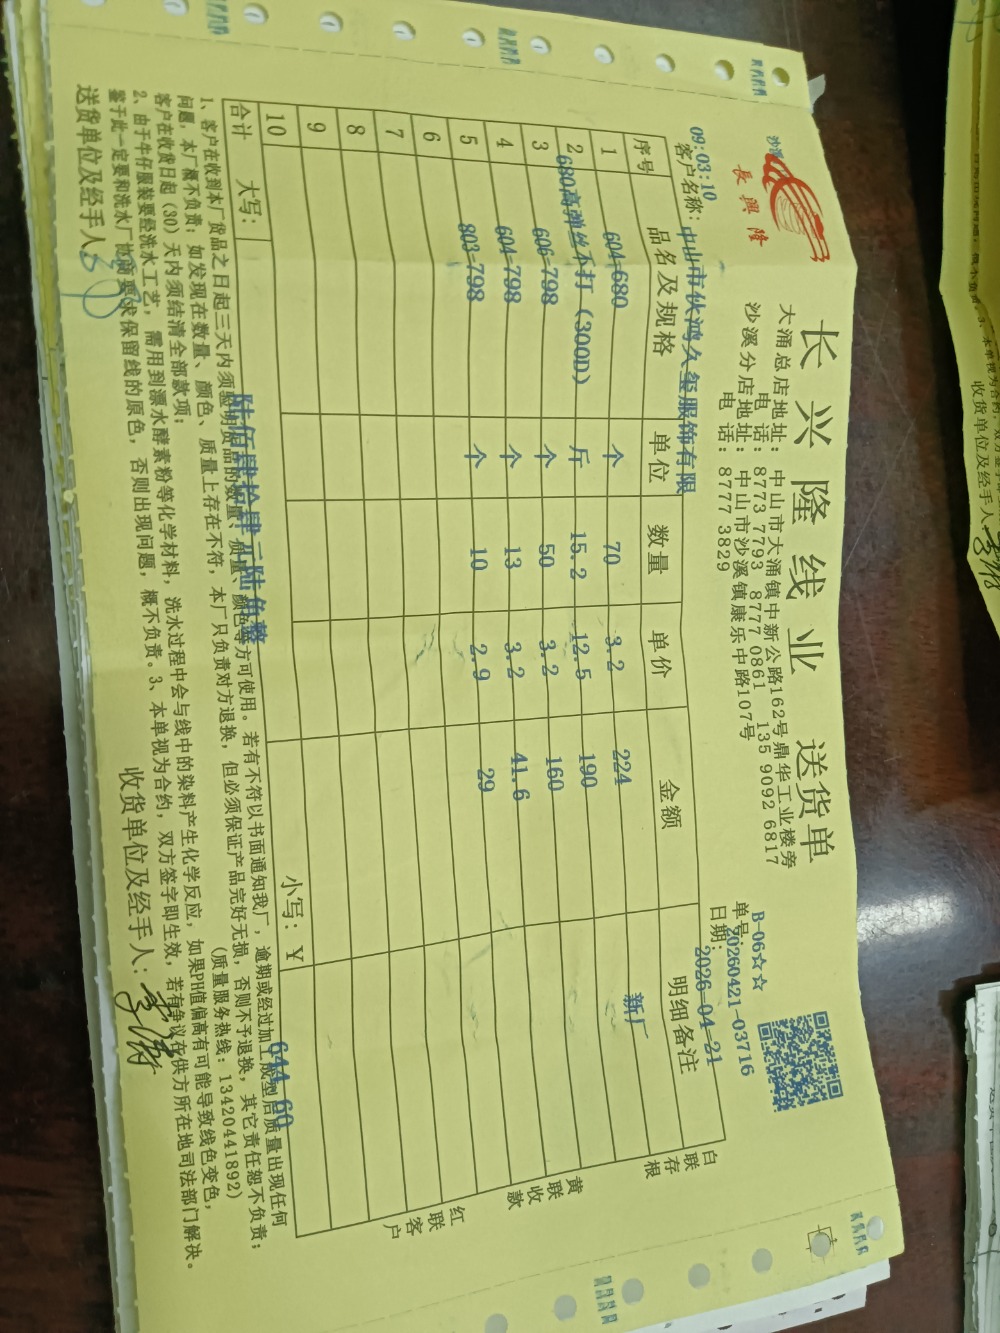 長興隆
长兴隆线业 送货单
大涌总店地址：中山市大涌镇中新公路162号鼎华工业楼旁
电话：8773 7793 8777 0861 135 9092 6817
沙溪分店地址：中山市沙溪镇康乐中路107号
电话：8777 3829
B-06☆☆
单号：20260421-03716
日期：2026-04-21
09:03:10
客户名称：中山市伙鸿久玺服饰有限
序号 品名及规格 单位 数量 单价 金额 明细备注
1 604=680 个 70 3.2 224 新厂
2 680高弹丝不打（300D） 斤 15.2 12.5 190
3 606=798 个 50 3.2 160
4 604=798 个 13 3.2 41.6
5 803=798 个 10 2.9 29
6
7
8
9
10
合计 大写：陆佰肆拾肆元陆角整 小写：￥ 644.60
白联存根
黄联收款
红联客户
1、客户在收到本厂货品之日起三天内须验明货品的数量、质量、颜色等方可使用。若有不符以书面通知我厂，逾期或经过加工成型后质量出现任何
问题，本厂概不负责；如发现在数量、颜色、质量上存在不符，本厂只负责对方退换，但必须保证产品完好无损，否则不予退换，其它责任恕不负责；
客户在收货日起（30）天内须结清全部款项； （质量服务热线：13420441892）
2、由于牛仔服装要经洗水工艺，需用到漂水酵素粉等化学材料，洗水过程中会与线中的染料产生化学反应，如果PH值偏高有可能导致线色变色，
鉴于此一定要和洗水厂协商要求保留线的原色，否则出现问题，概不负责。3、本单视为合约，双方签字即生效，若有争议在供方所在地司法部门解决。
送货单位及经手人： 收货单位及经手人：
收货单位及经手人：